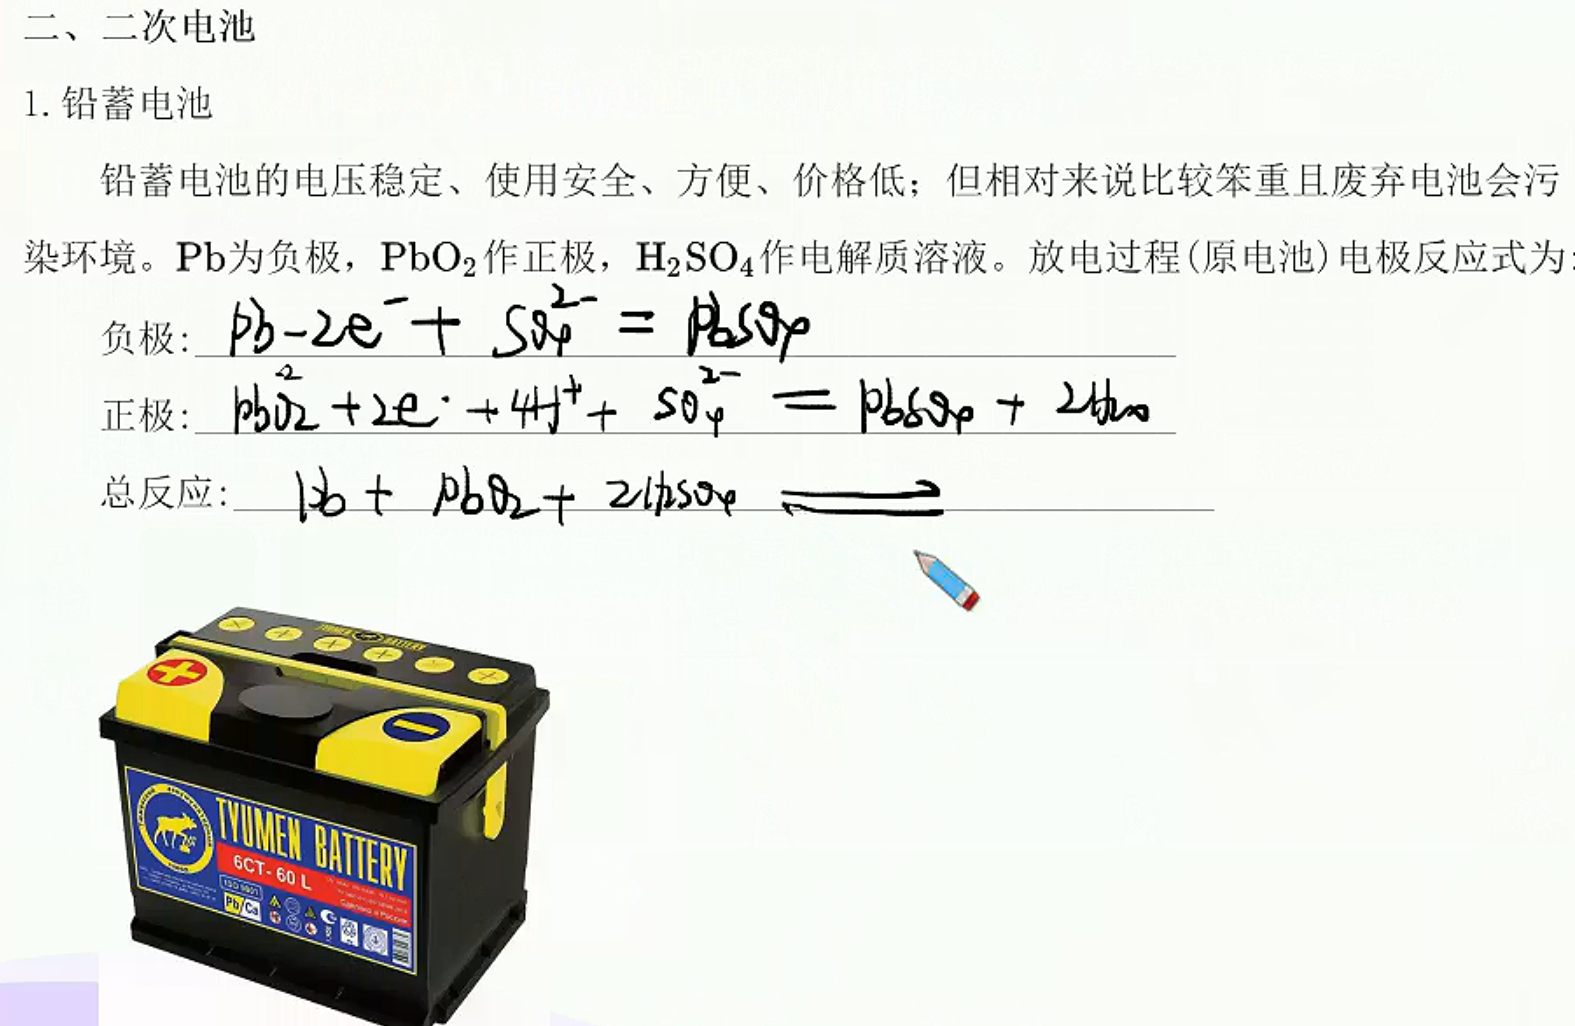 二、二次电池
1. 铅蓄电池
铅蓄电池的电压稳定、使用安全、方便、价格低；但相对来说比较笨重且废弃电池会污
染环境。Pb为负极，PbO₂作正极，H₂SO₄作电解质溶液。放电过程(原电池)电极反应式为:
负极: Pb-2e⁻ + SO₄²⁻ = PbSO₄
正极: PbO₂ + 2e⁻ + 4H⁺ + SO₄²⁻ = PbSO₄ + 2H₂O
总反应: Pb + PbO₂ + 2H₂SO₄ ⇌
TYUMEN BATTERY
TYUMEN BATTERY
6CT-60 L
ISO 9001
Pb/Ca
Сделано в России